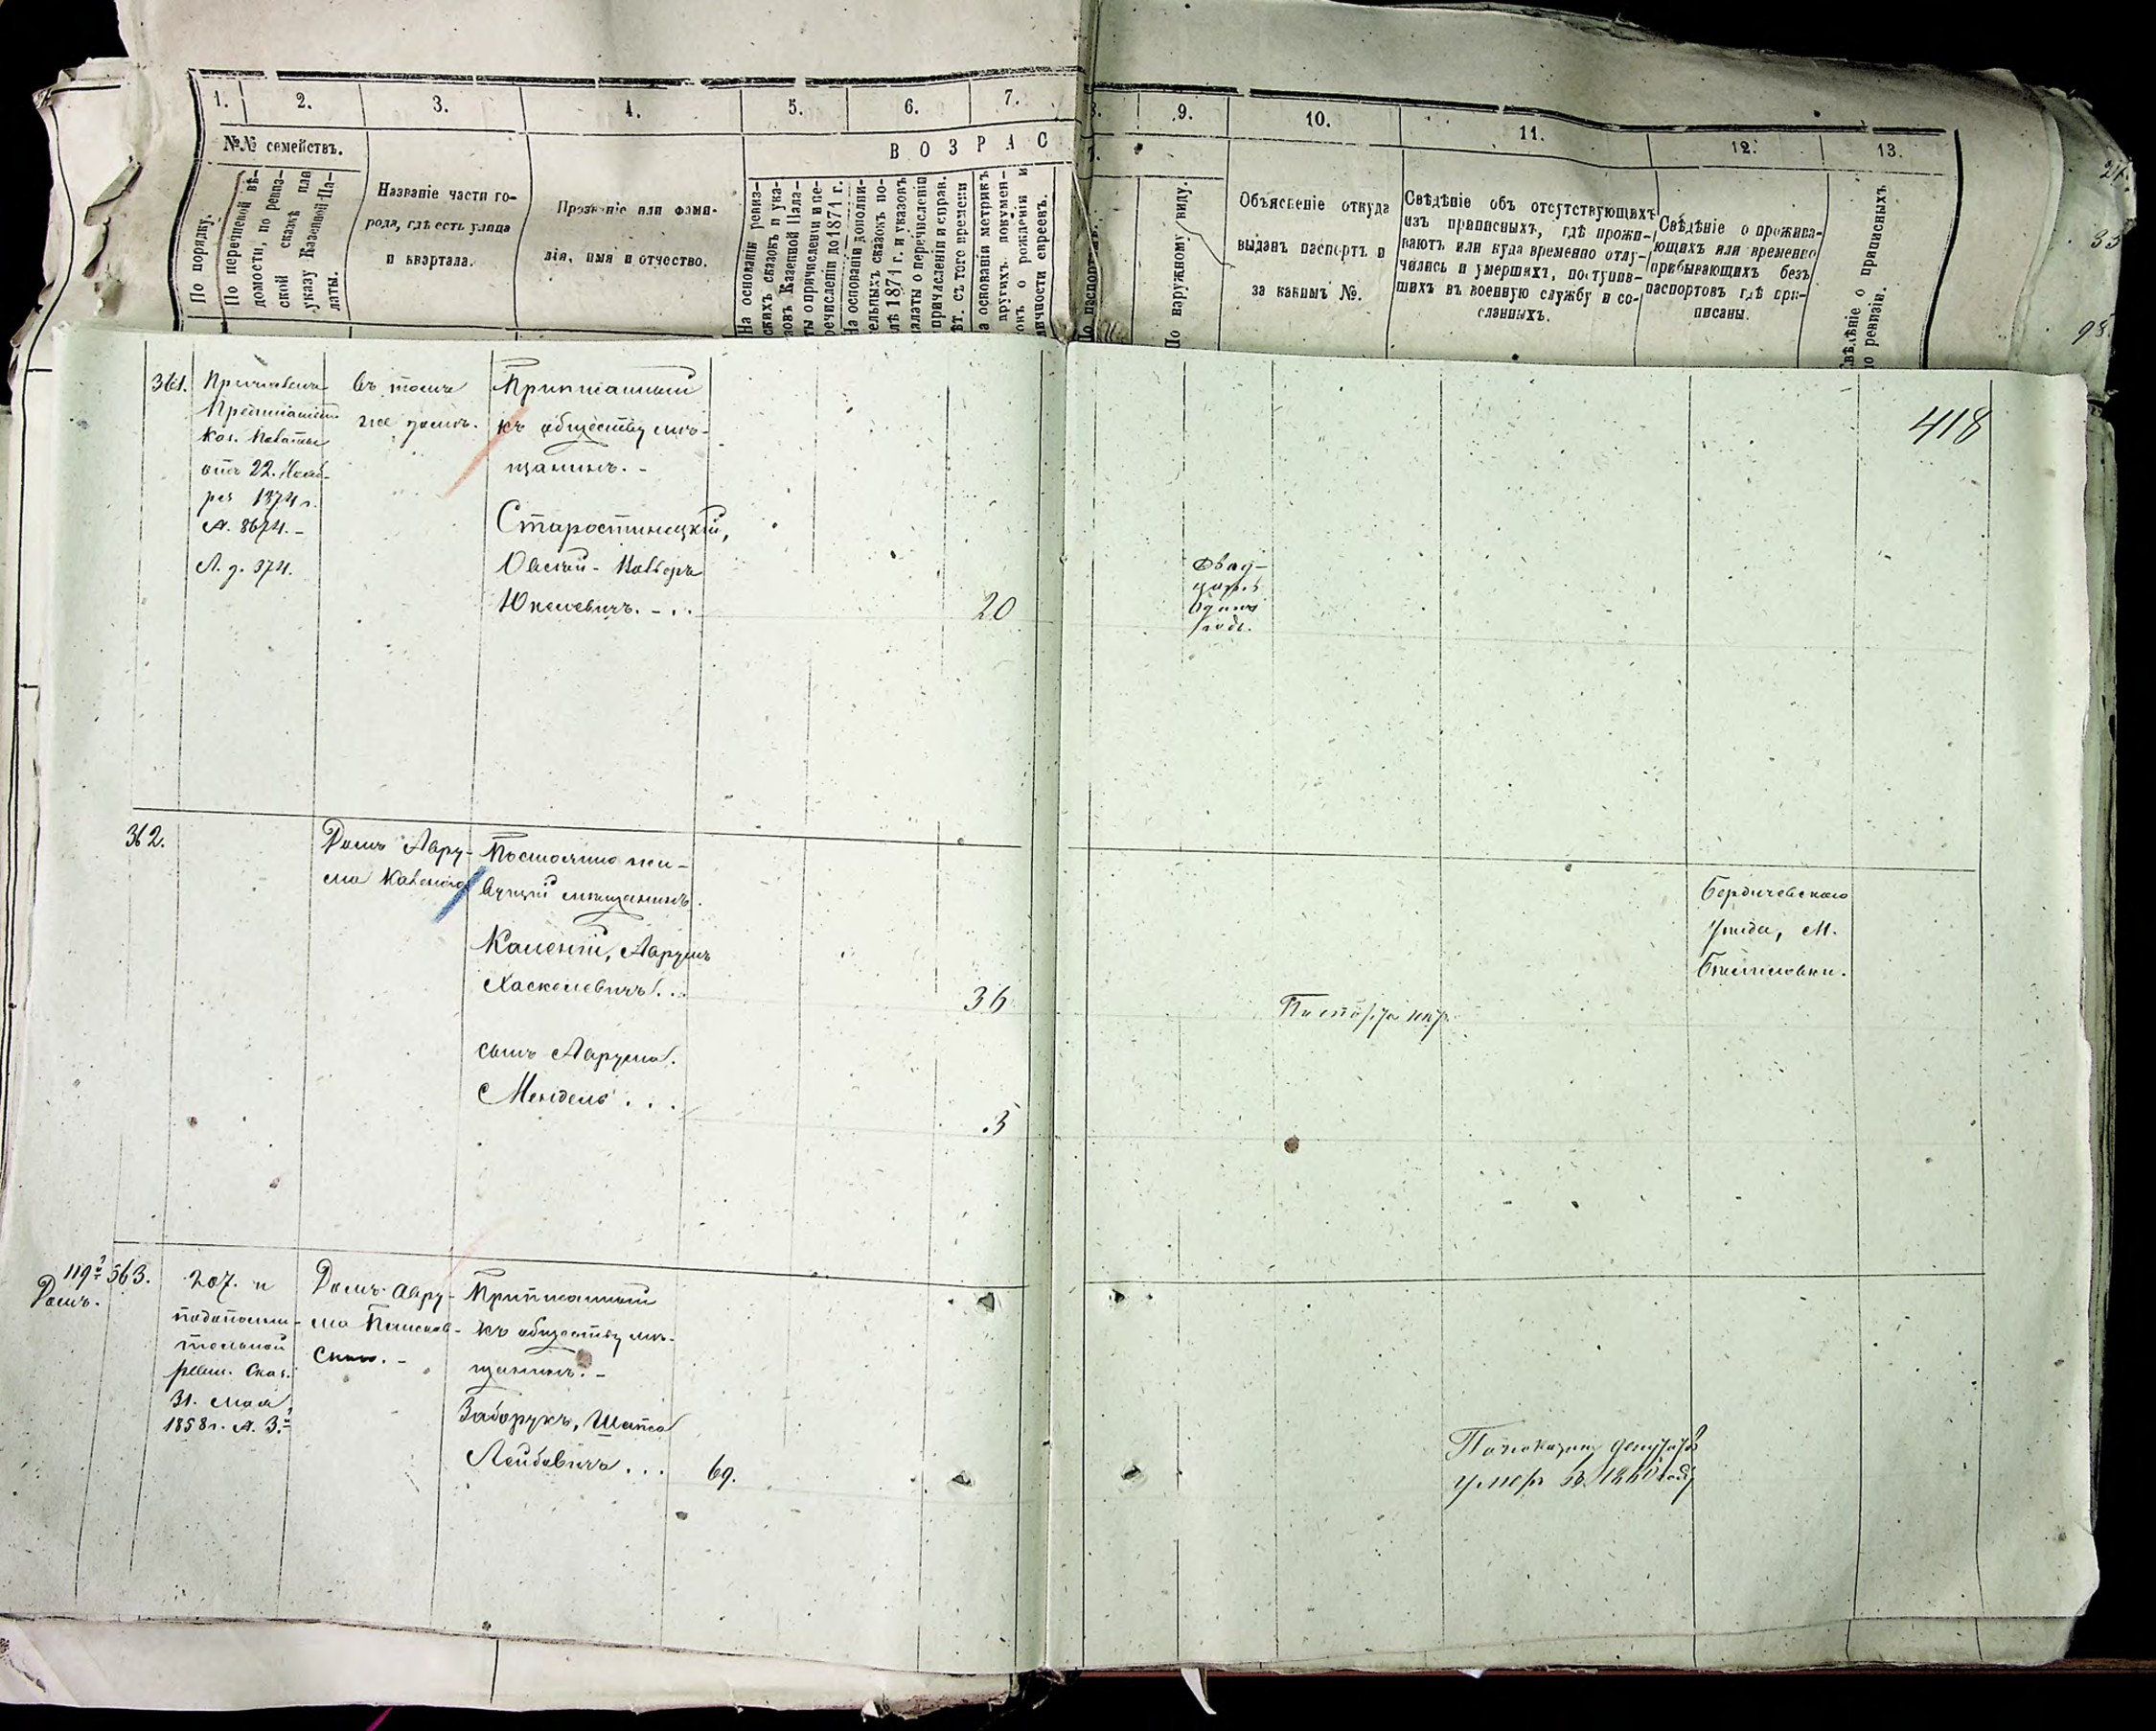 1.
2.
3.
4.
5.
6.
7.
8.
9.
10.
11.
12.
13.
№№ семействъ.
По порядку.
По перечневой вѣ-
домости, по ревиз-
ской сказкѣ или
указу Казенной Па-
латы.
Названіе части го-
рода, гдѣ есть улица
и квартала.
Прозваніе или фами-
лія, имя и отчество.
ВОЗРАС
На основаніи ревиз-
скихъ сказокъ и ука-
зовъ Казенной Пала-
ты о причисленіи и пе-
речисленіи до 1871 г.
На основаніи дополни-
тельныхъ сказокъ по-
слѣ 1871 г. и указовъ
палаты о перечисленіи
причисленіи и справ.
ѣт. съ того времени
а основаніи метрикъ
другихъ докумен-
онъ о рожденіи и
личности евреевъ.
По паспортамъ.
По наружному виду.
Объясненіе откуда
выданъ паспортъ и
за какимъ №.
Свѣдѣніе объ отсутствующихъ
изъ приписныхъ, гдѣ прожи-
ваютъ или куда временно отлу-
чились и умершихъ, поступив-
шихъ въ военную службу и со-
сланныхъ.
Свѣдѣніе о прожива-
ющихъ или временно
прибывающихъ безъ
паспортовъ гдѣ при-
писаны.
Свѣдѣніе о приписныхъ
по ревизіи.
418
361.
Причисленъ
Предписаніемъ
Каз. Палаты
отъ 22. Нояб-
ря 1874 г.
№. 8674.-
Л. д. 374.
Въ томъ
же домѣ.
Приписанный
къ обществу мѣ-
щанинъ.-
Старостинецкій,
Овсей-
Юкелевичъ.-..
20
Двад-
цать
Одинъ
годъ.
362.
Домъ Авру-
ма Каменнаго
Постоянно жи-
вущій мѣщанинъ.
Каменній, Аврумъ
Хаскелевичъ...
36
сынъ Аврума.
Мендель...
3
Паспорта нѣтъ.
Бердичевскаго
Уѣзда, М.
119й
Домъ.
363.
207. и
по дополни-
тельной
ревиз. Сказ.
31. Мая
1858 г. №. 3.й
Домъ Авру-
ма
Приписанный
къ обществу мѣ-
щанинъ.-
Заборукъ, Шапса
Лейбовичъ...
69.
По показанію депутатовъ
умеръ въ 1860 году